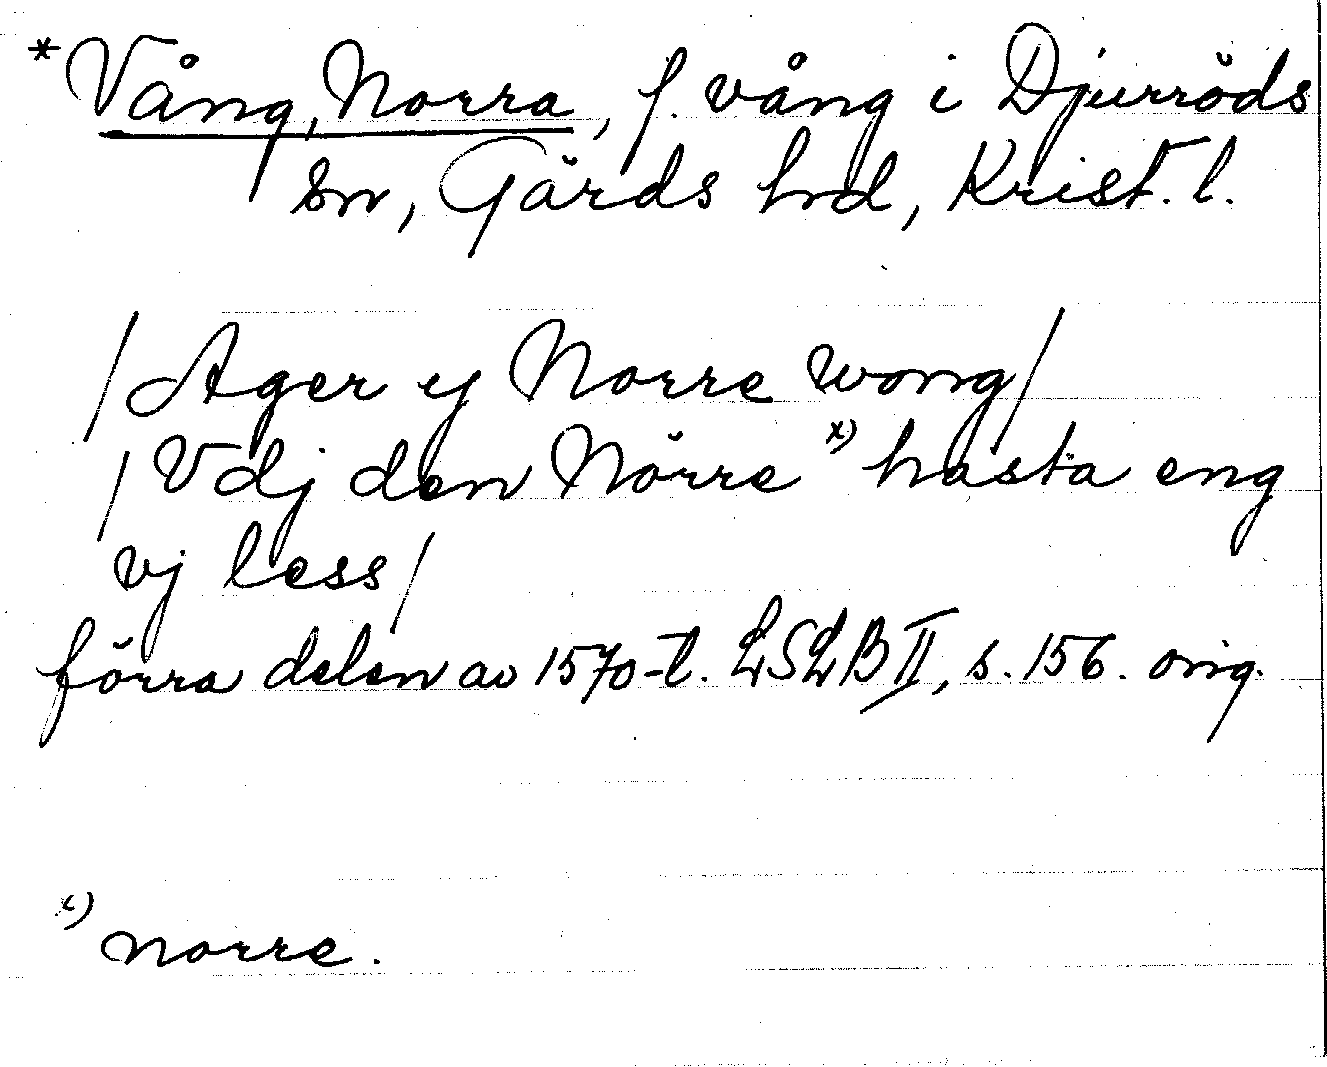 *Vång, Norra, f. vång i Djurröds
sn, Gärds hrd, Krist. l.
/Ager y Norre wong/
/Vdj den Nörre x) hasta eng
vj less/
förra delen av 1570-t. LSLB II, s. 156. orig.
x) norre.